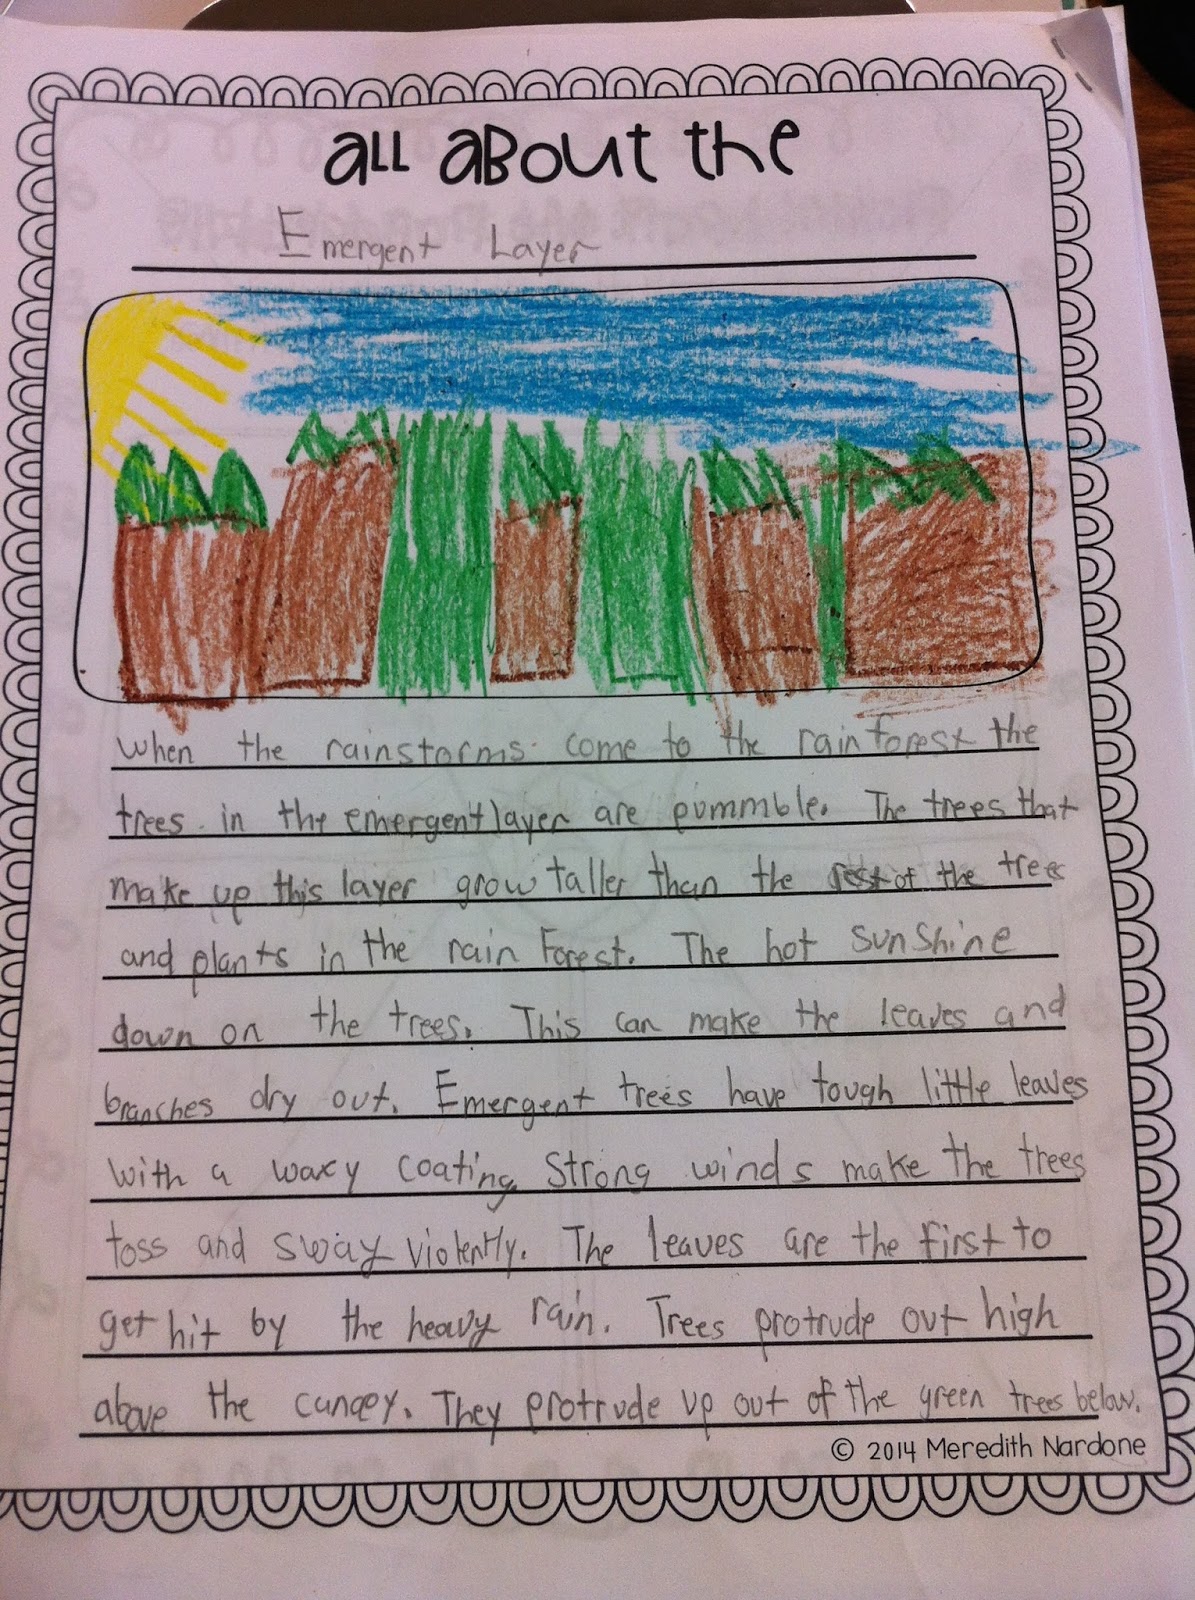 all about the
Emergent Layer
When the rainstorms come to the rainforest the
trees in the emergent layer are pummble. The trees that
make up this layer grow taller than the rest of the trees
and plants in the rain Forest. The hot sunshine
down on the trees. This can make the leaves and
branches dry out. Emergent trees have tough little leaves
with a waxy coating. Strong winds make the trees
toss and sway violently. The leaves are the first to
get hit by the heavy rain. Trees protrude out high
above the canopy. They protrude up out of the green trees below.
© 2014 Meredith Nardone